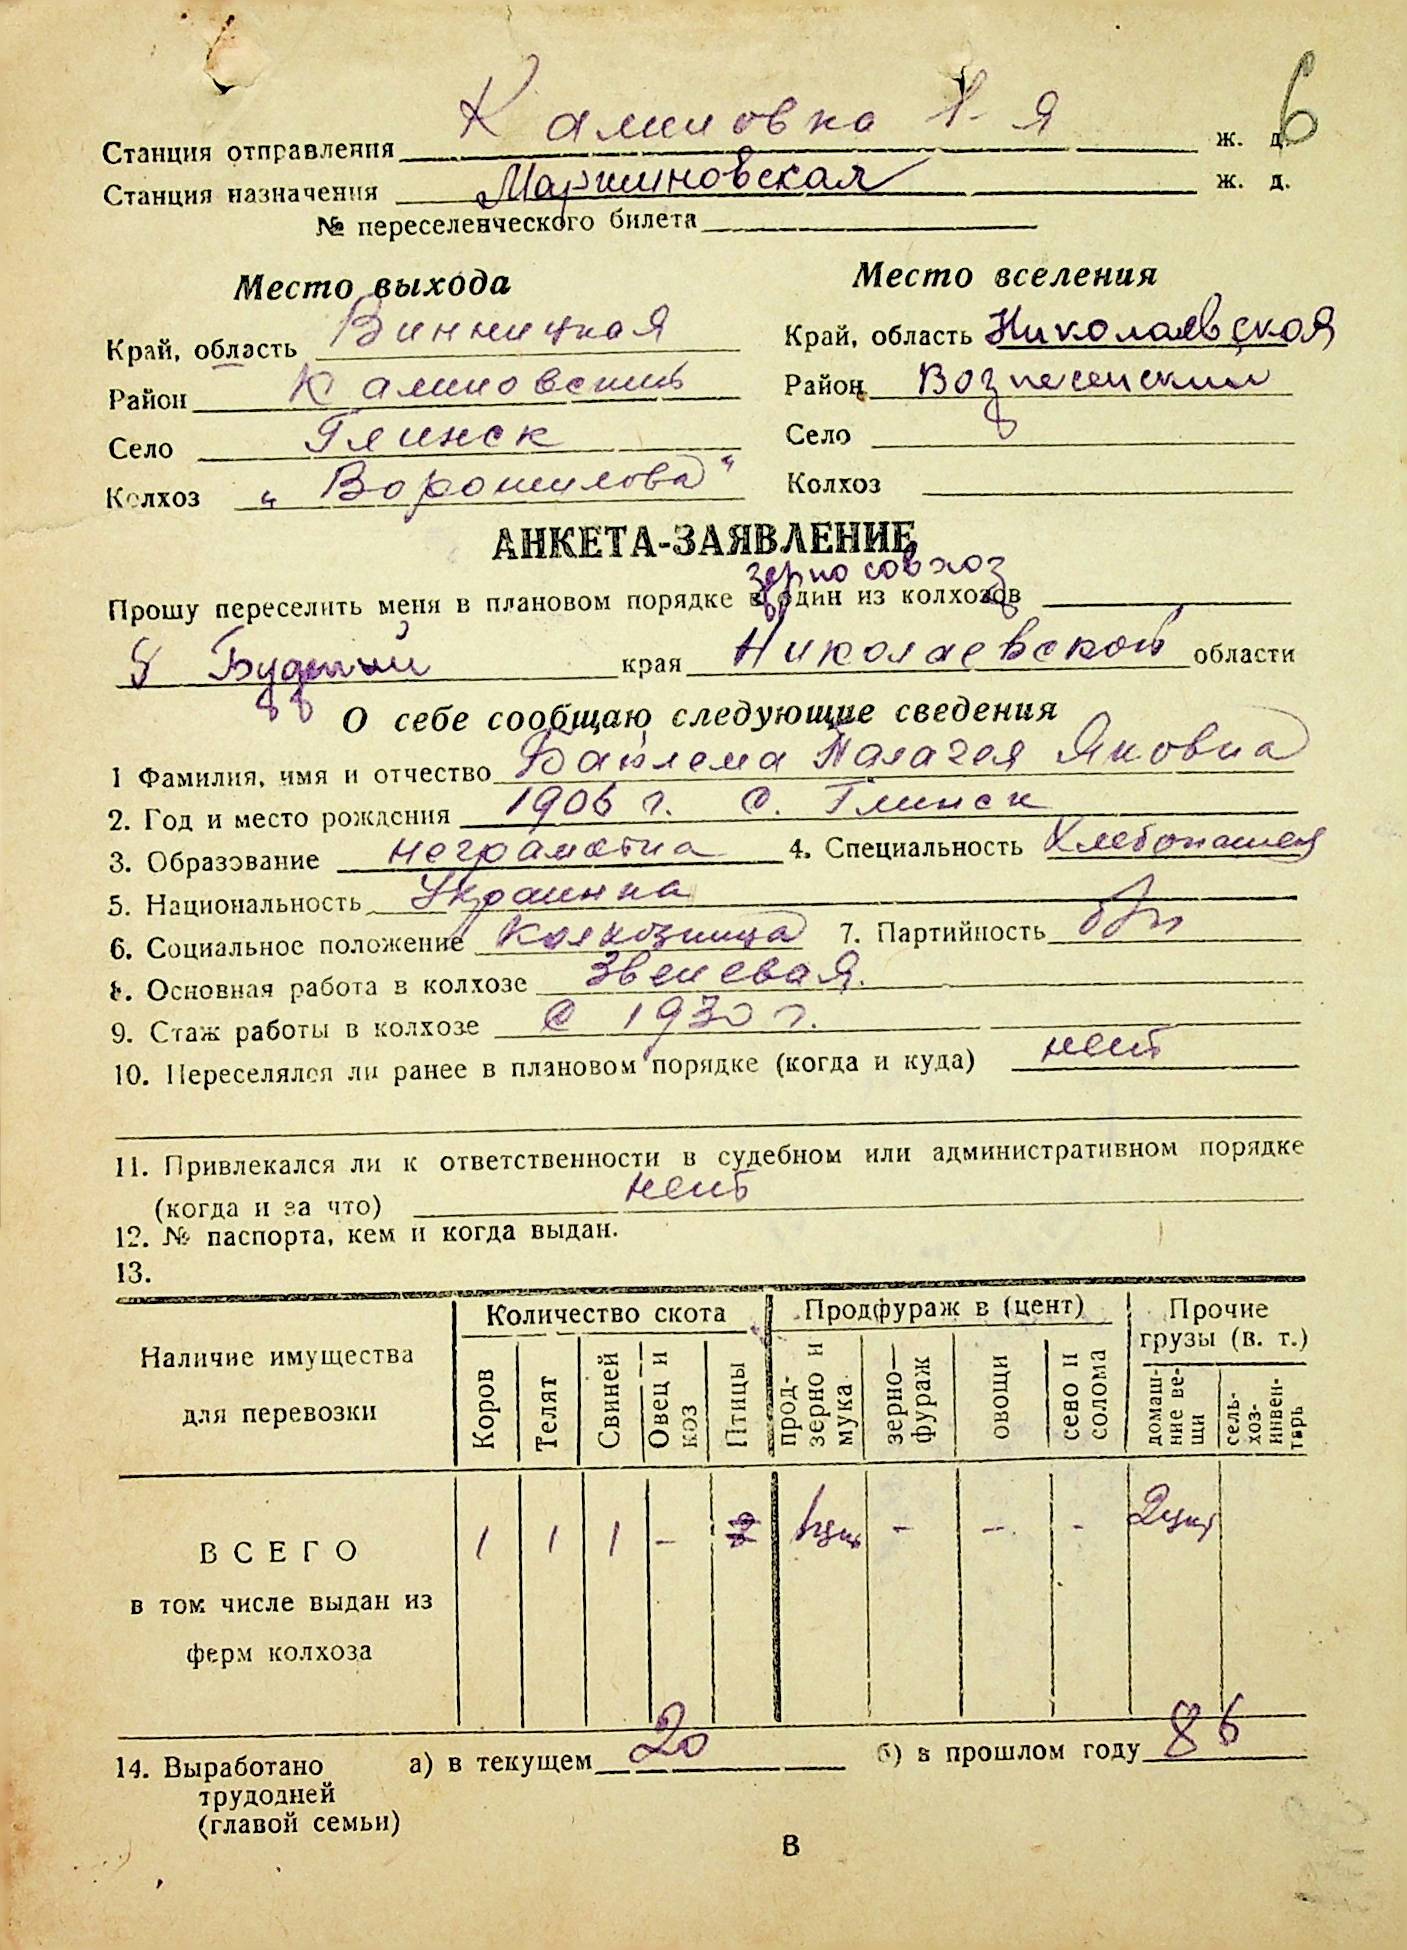 6
Станция отправления Калиновка 1-я ж. д.
Станция назначения Мартиновская ж. д.
№ переселенческого билета
Место выхода
Край, область Винницкая
Район Калиновский
Село Глинск
Колхоз „Ворошилова"
Место вселения
Край, область Николаевская
Район Вознесенский
Село
Колхоз
АНКЕТА-ЗАЯВЛЕНИЕ
зерносовхоз
Прошу переселить меня в плановом порядке в один из колхозов
края Николаевской области
О себе сообщаю следующие сведения
1 Фамилия, имя и отчество Палагея Яковна
2. Год и место рождения 1906 г. с. Глинск
3. Образование неграмотна 4. Специальность Хлебопашец
5. Национальность Украинка
6. Социальное положение Колхозница 7. Партийность б/п
8. Основная работа в колхозе Звеневая.
9. Стаж работы в колхозе С 1930 г.
10. Переселялся ли ранее в плановом порядке (когда и куда) нет
11. Привлекался ли к ответственности в судебном или административном порядке
(когда и за что) нет
12. № паспорта, кем и когда выдан.
13.
Наличие имущества для перевозки
Количество скота Продфураж в (цент) Прочие грузы (в. т.)
Коров Телят Свиней Овец и коз Птицы прод-зерно и мука зерно-фураж овощи сено и солома домаш-ние ве-щи сель-хоз-инвен-тарь
ВСЕГО 1 1 1 - 1цнт - - - 2цнт
в том числе выдан из
ферм колхоза
14. Выработано а) в текущем 20 б) в прошлом году 86
трудодней
(главой семьи)
В